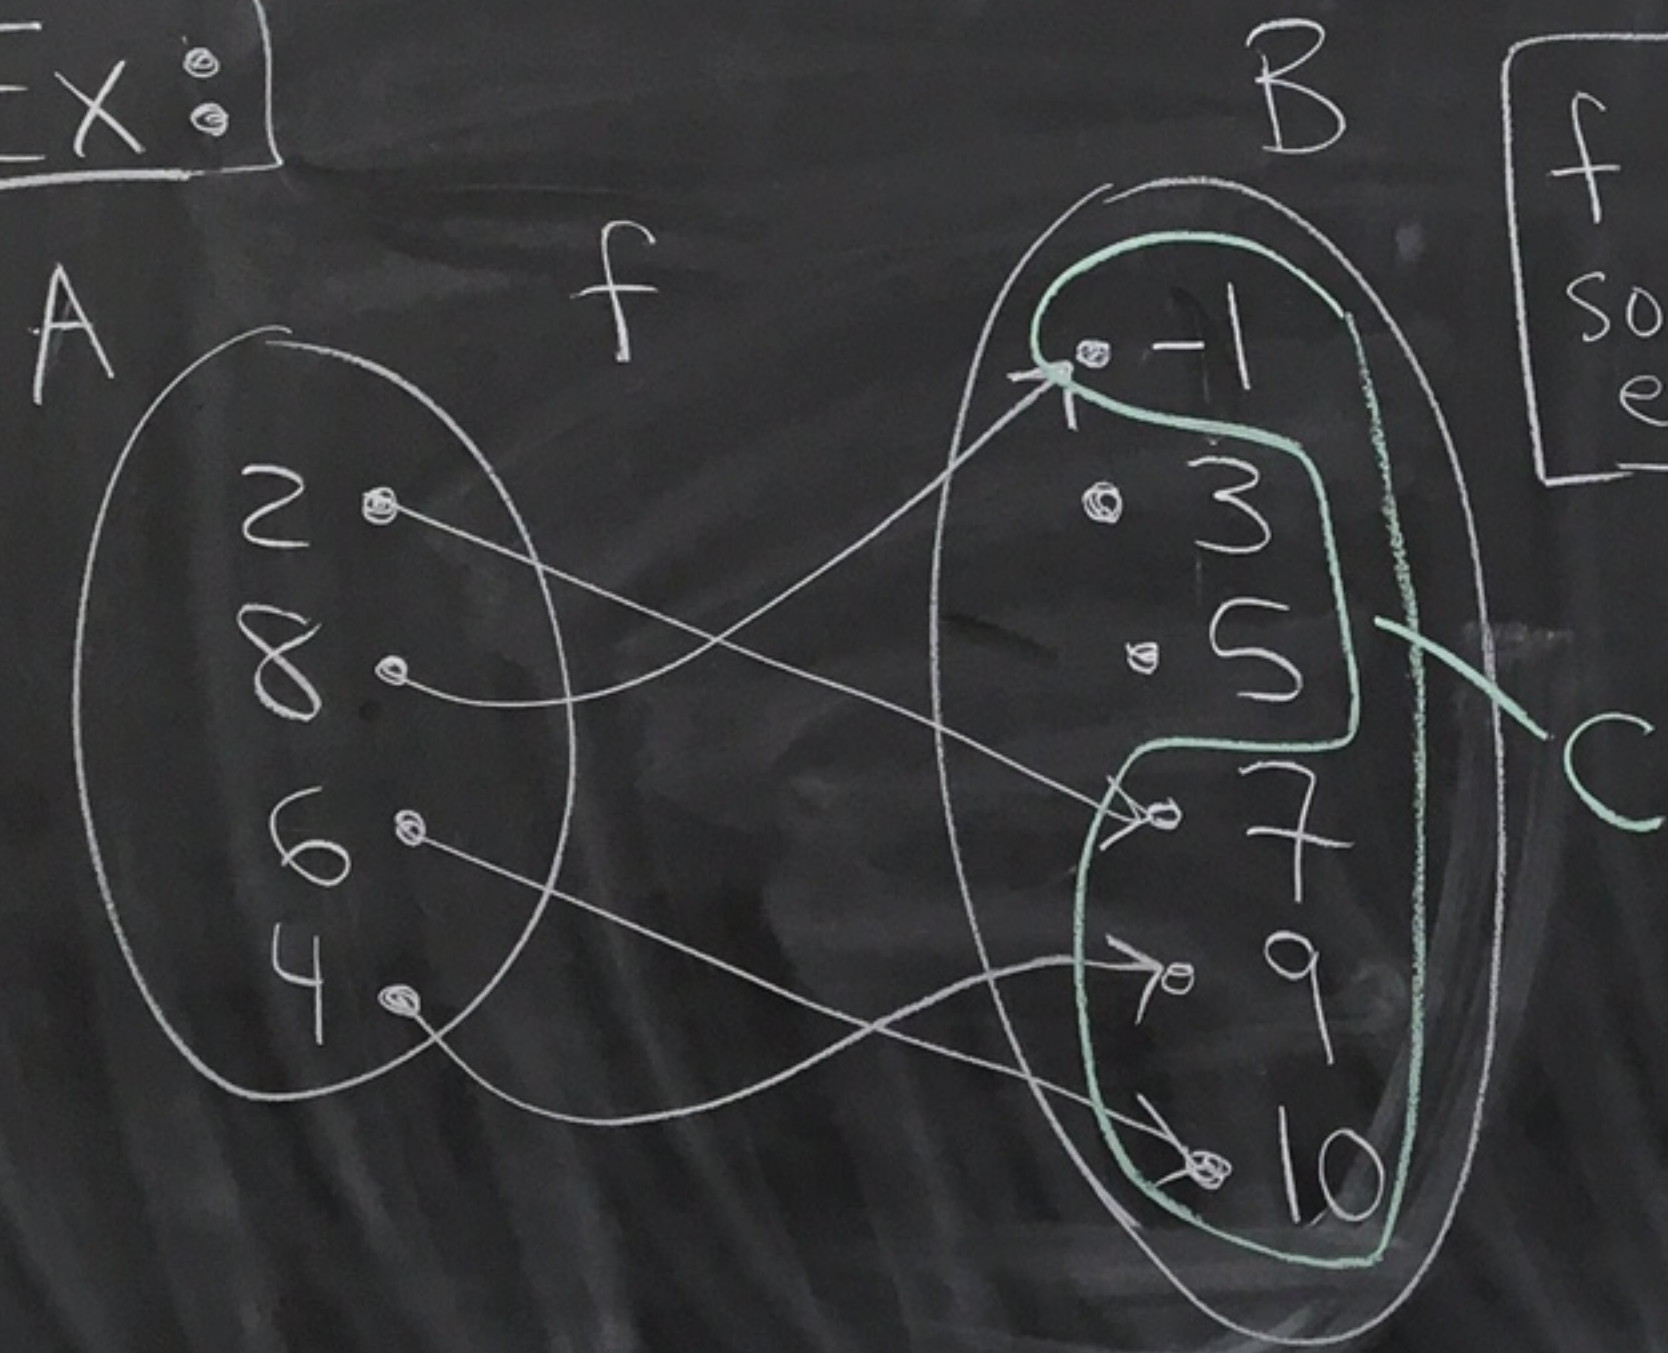 Ex:
A
f
B
2
8
6
4
-1
3
5
7
9
10
C
f
so
e